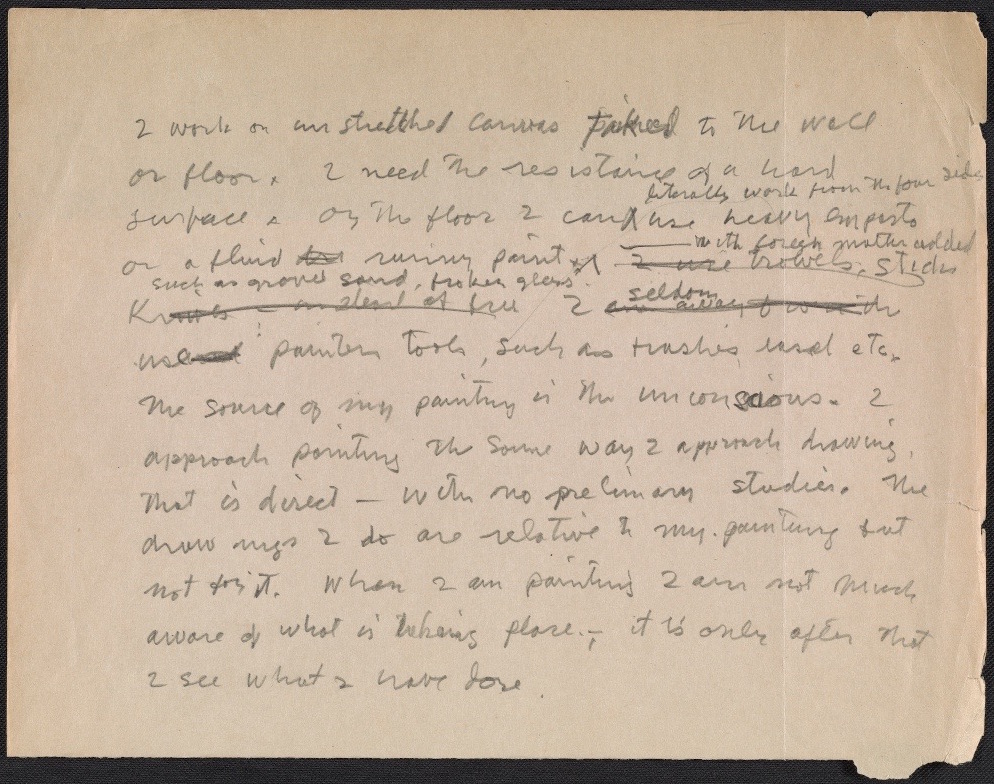 I work on unstretched canvas tacked to the wall
or floor. I need the resistance of a hard
literally work from the four sides
surface. On the floor I can use heavy impasto
with foreign matter added
or a fluid runny paint. I use trowels, sticks
such as gravel sand, broken glass.
Knives instead of bru I seldom
use painters tools, such as brushes, easel etc.
The source of my painting is the unconscious. I
approach painting the same way I approach drawing,
that is direct — with no prelimary studies. The
drawings I do are relative to my painting but
not for it. When I am painting I am not much
aware of what is taking place. — it is only after that
I see what I have done.